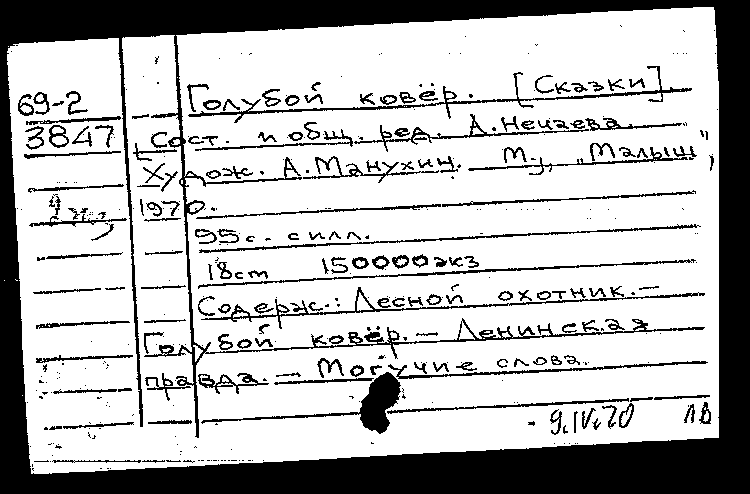 69-2 Голубой ковёр. [Сказки].
3847 Сост. и общ. ред. А. Нечаева.
Худож. А. Манухин. М., „Малыш",
1970.
95 с. с илл.
18 cm 150000 экз
Содерж.: Лесной охотник. —
Голубой ковёр. — Ленинская
правда. — Могучие слова.
9.IV.70 ЛВ